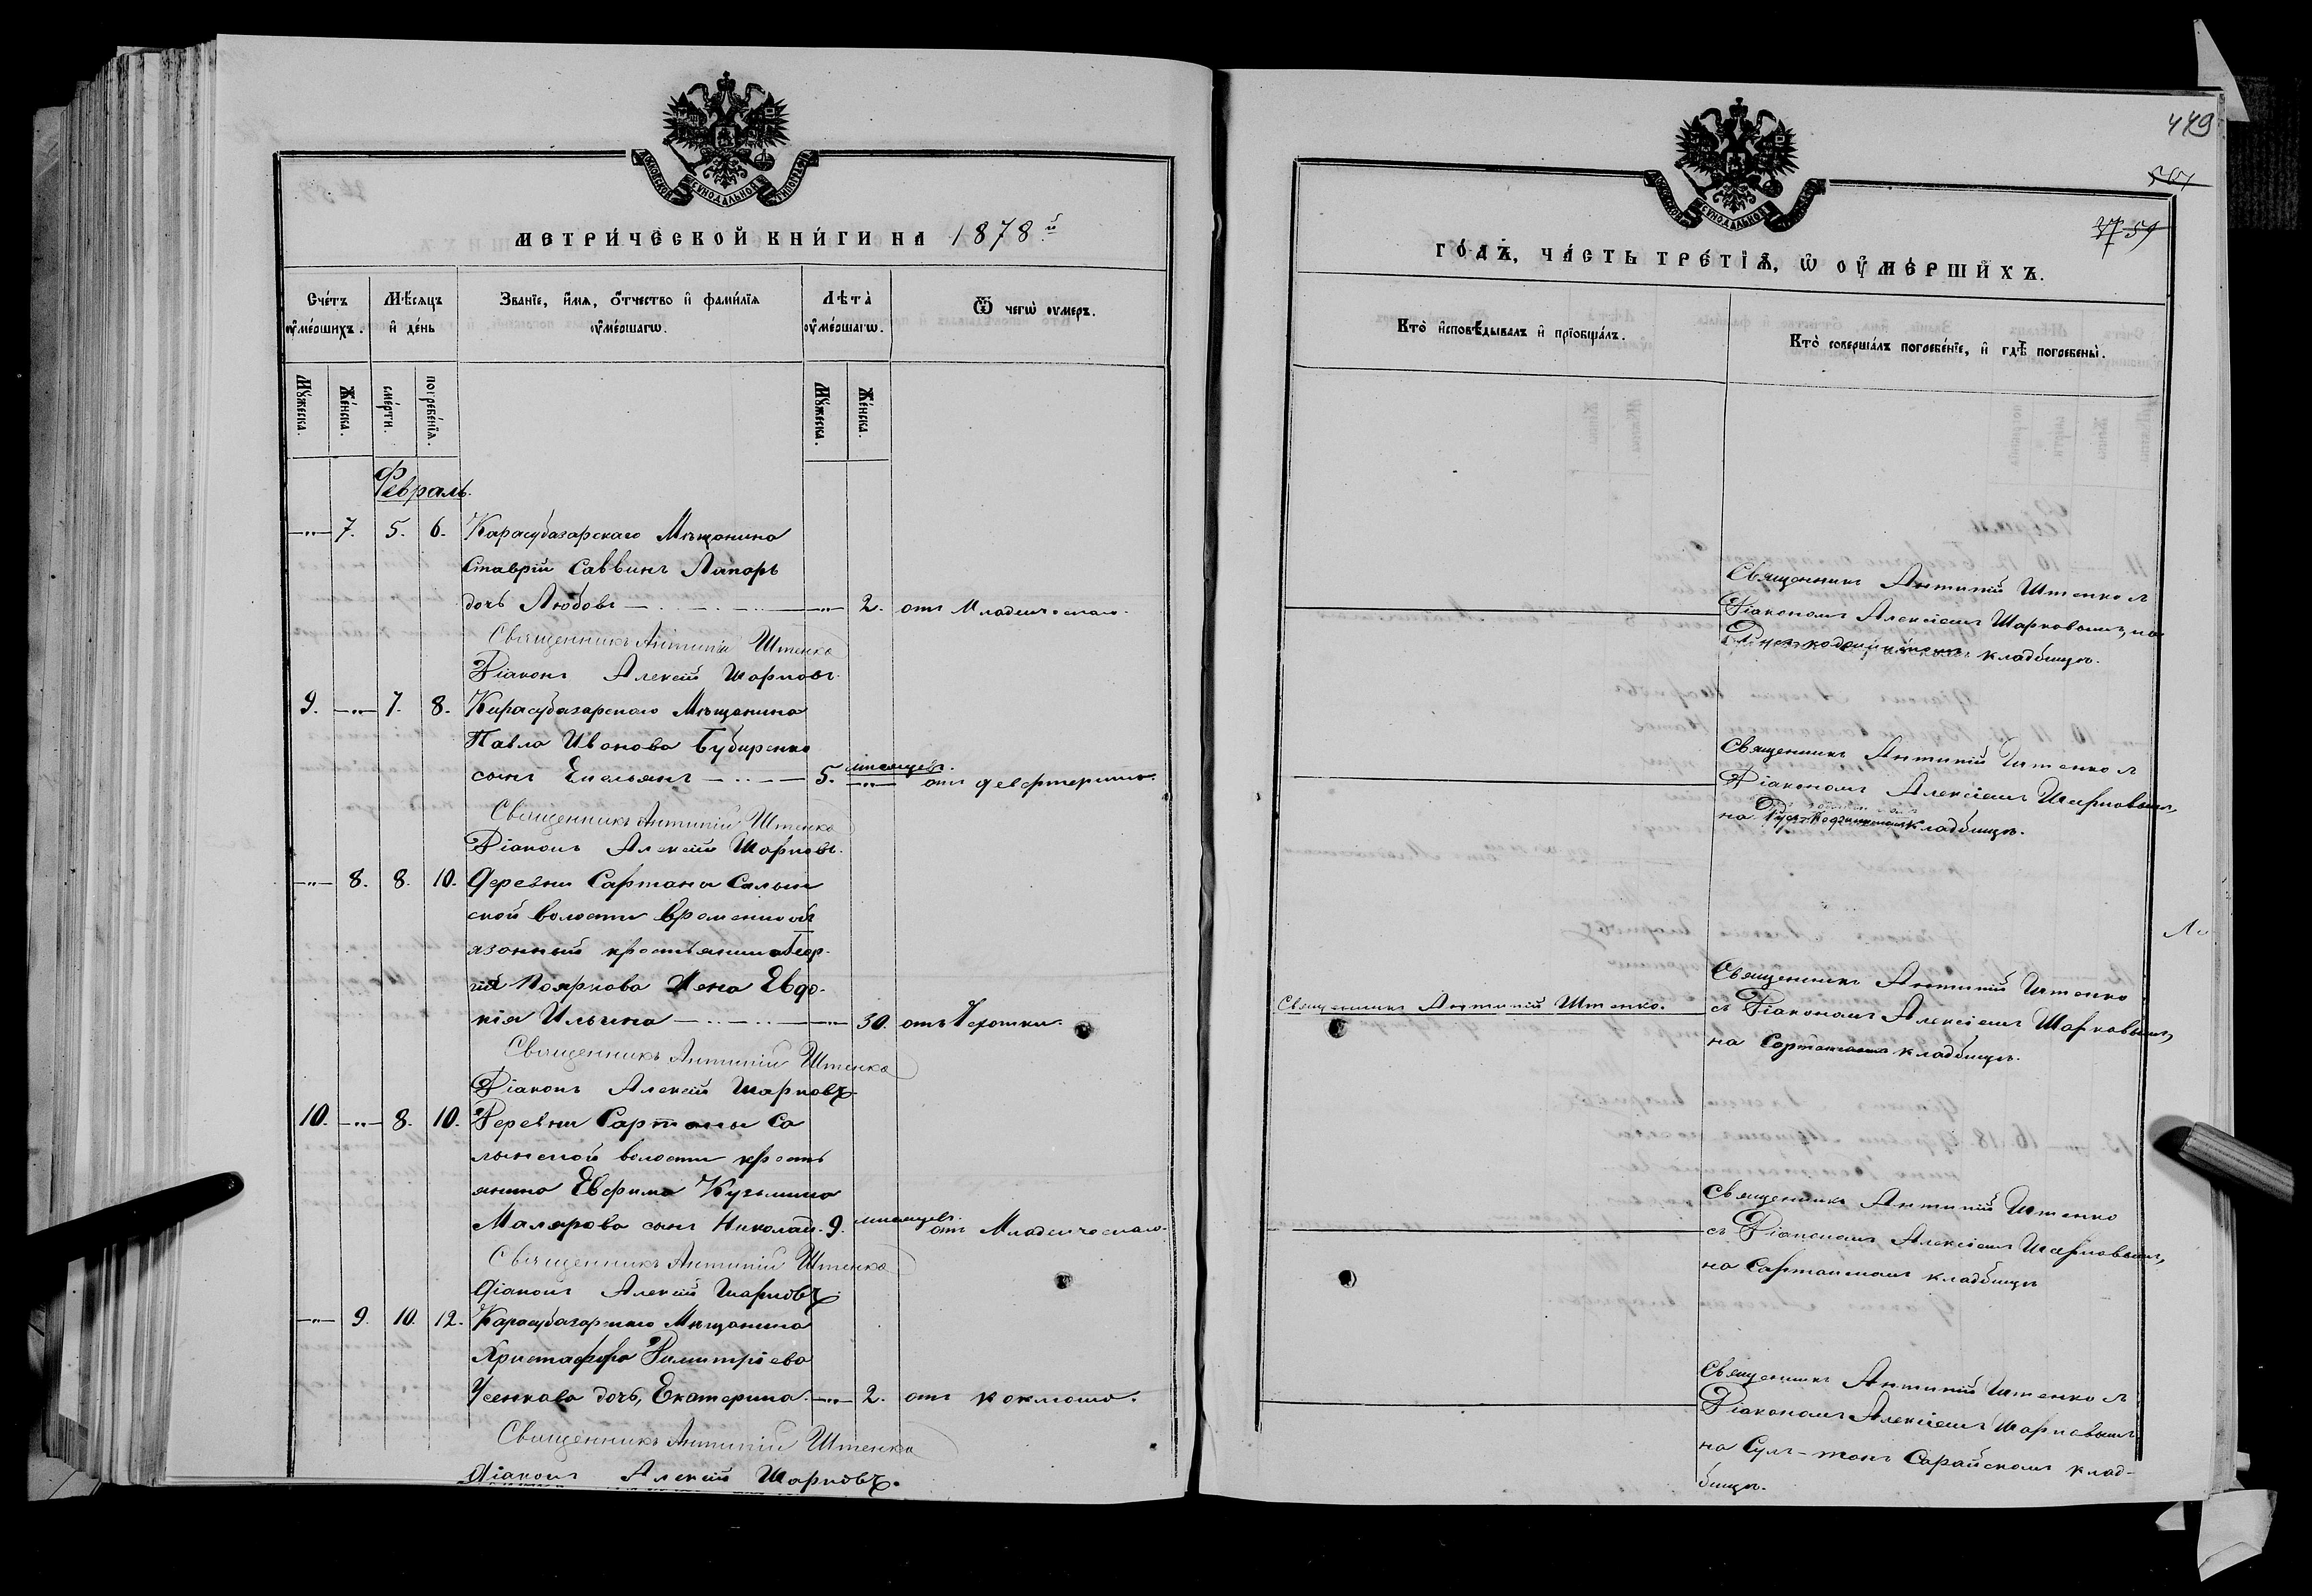 МОСКОВСКОЙ СУНОДАЛЬНОЙ ТИПОГРАФІИ
МЕТРИ́ЧЕСКОЙ КНИ́ГИ НА 1878 й
Сче́тъ ᲂу҆ме́ршихъ.
Мѣ́сяцъ и҆ де́нь
Зва́нїе, и҆́мя, ѻ҆́тчество и҆ фами́лїя ᲂу҆ме́ршагѡ.
Лѣта̀ ᲂу҆ме́ршагѡ.
Ѿ чегѡ̀ ᲂу҆меръ.
Мꙋ́жеска.
Же́нска.
сме́рти.
погребе́нїѧ.
Мꙋ́жеска.
Же́нска.
Февраль.
—"— 7. 5. 6. Карасубазарскаго Мѣщанина
Ставрій Саввинъ Лапорь
дочь Любовь —"— 2. отъ Младенческаго.
Священникъ Антипій Штенко
Діаконъ Алексій Шарковъ.
9. —"— 7. 8. Карасубазарскаго Мѣщанина
Павла Иванова Бубыренко
сынъ Емельянъ — 5. мѣсяцевъ. —"— отъ
Священникъ Антипій Штенко
Діаконъ Алексій Шарковъ.
—"— 8. 8. 10. Деревни Сартаны Салын
ской волости временнооб
язанный крестьянина Геор-
гія Пояркова Жена Евдо-
кія Ильина —"— 30. отъ Чахотки.
Священникъ Антипій Штенко
Діаконъ Алексій Шарковъ
10. —"— 8. 10. Деревни Сартаны Са
лынской волости кресть
янина Евфима Кузьмина
Малярова сынъ Николай. 9. мѣсяцевъ. отъ Младенческаго.
Священникъ Антипій Штенко
Діаконъ Алексій Шарковъ.
—"— 9. 10. 12. Карасубазарскаго Мѣщанина
Христофора Димитріева
Усенкова дочь, Екатерина. —"— 2. отъ коклюша.
Священникъ Антипій Штенко
Діаконъ Алексій Шарковъ.
479
МОСКОВСКОЙ СУНОДАЛЬНОЙ ТИПОГРАФІИ
ГО́ДЪ, ЧА́СТЬ ТРЕ́ТЇѦ, Ѡ҆ ОУ҆МЕ́РШИХЪ.
Кто̀ и҆сповѣ́дывалъ и҆ прїѡбща́лъ.
Кто̀ соверша́лъ погребе́нїе, и҆ гдѣ̀ погребены̀.
Священникъ Антипій Штенко съ
Діакономъ Алексіемъ Шарковымъ, на
кладбищѣ.
Священникъ Антипій Штенко съ
Діакономъ Алексіемъ Шарковымъ,
на кладбищѣ.
Священникъ Антипій Штенко.
Священникъ Антипій Штенко
съ Діакономъ Алексіемъ Шарковымъ,
на Сартанскомъ кладбищѣ.
Священникъ Антипій Штенко
съ Діакономъ Алексіемъ Шарковымъ,
на Сартанскомъ кладбищѣ
Священникъ Антипій Штенко съ
Діакономъ Алексіемъ Шарковымъ
на Султан-Сарайскомъ клад-
бищѣ.